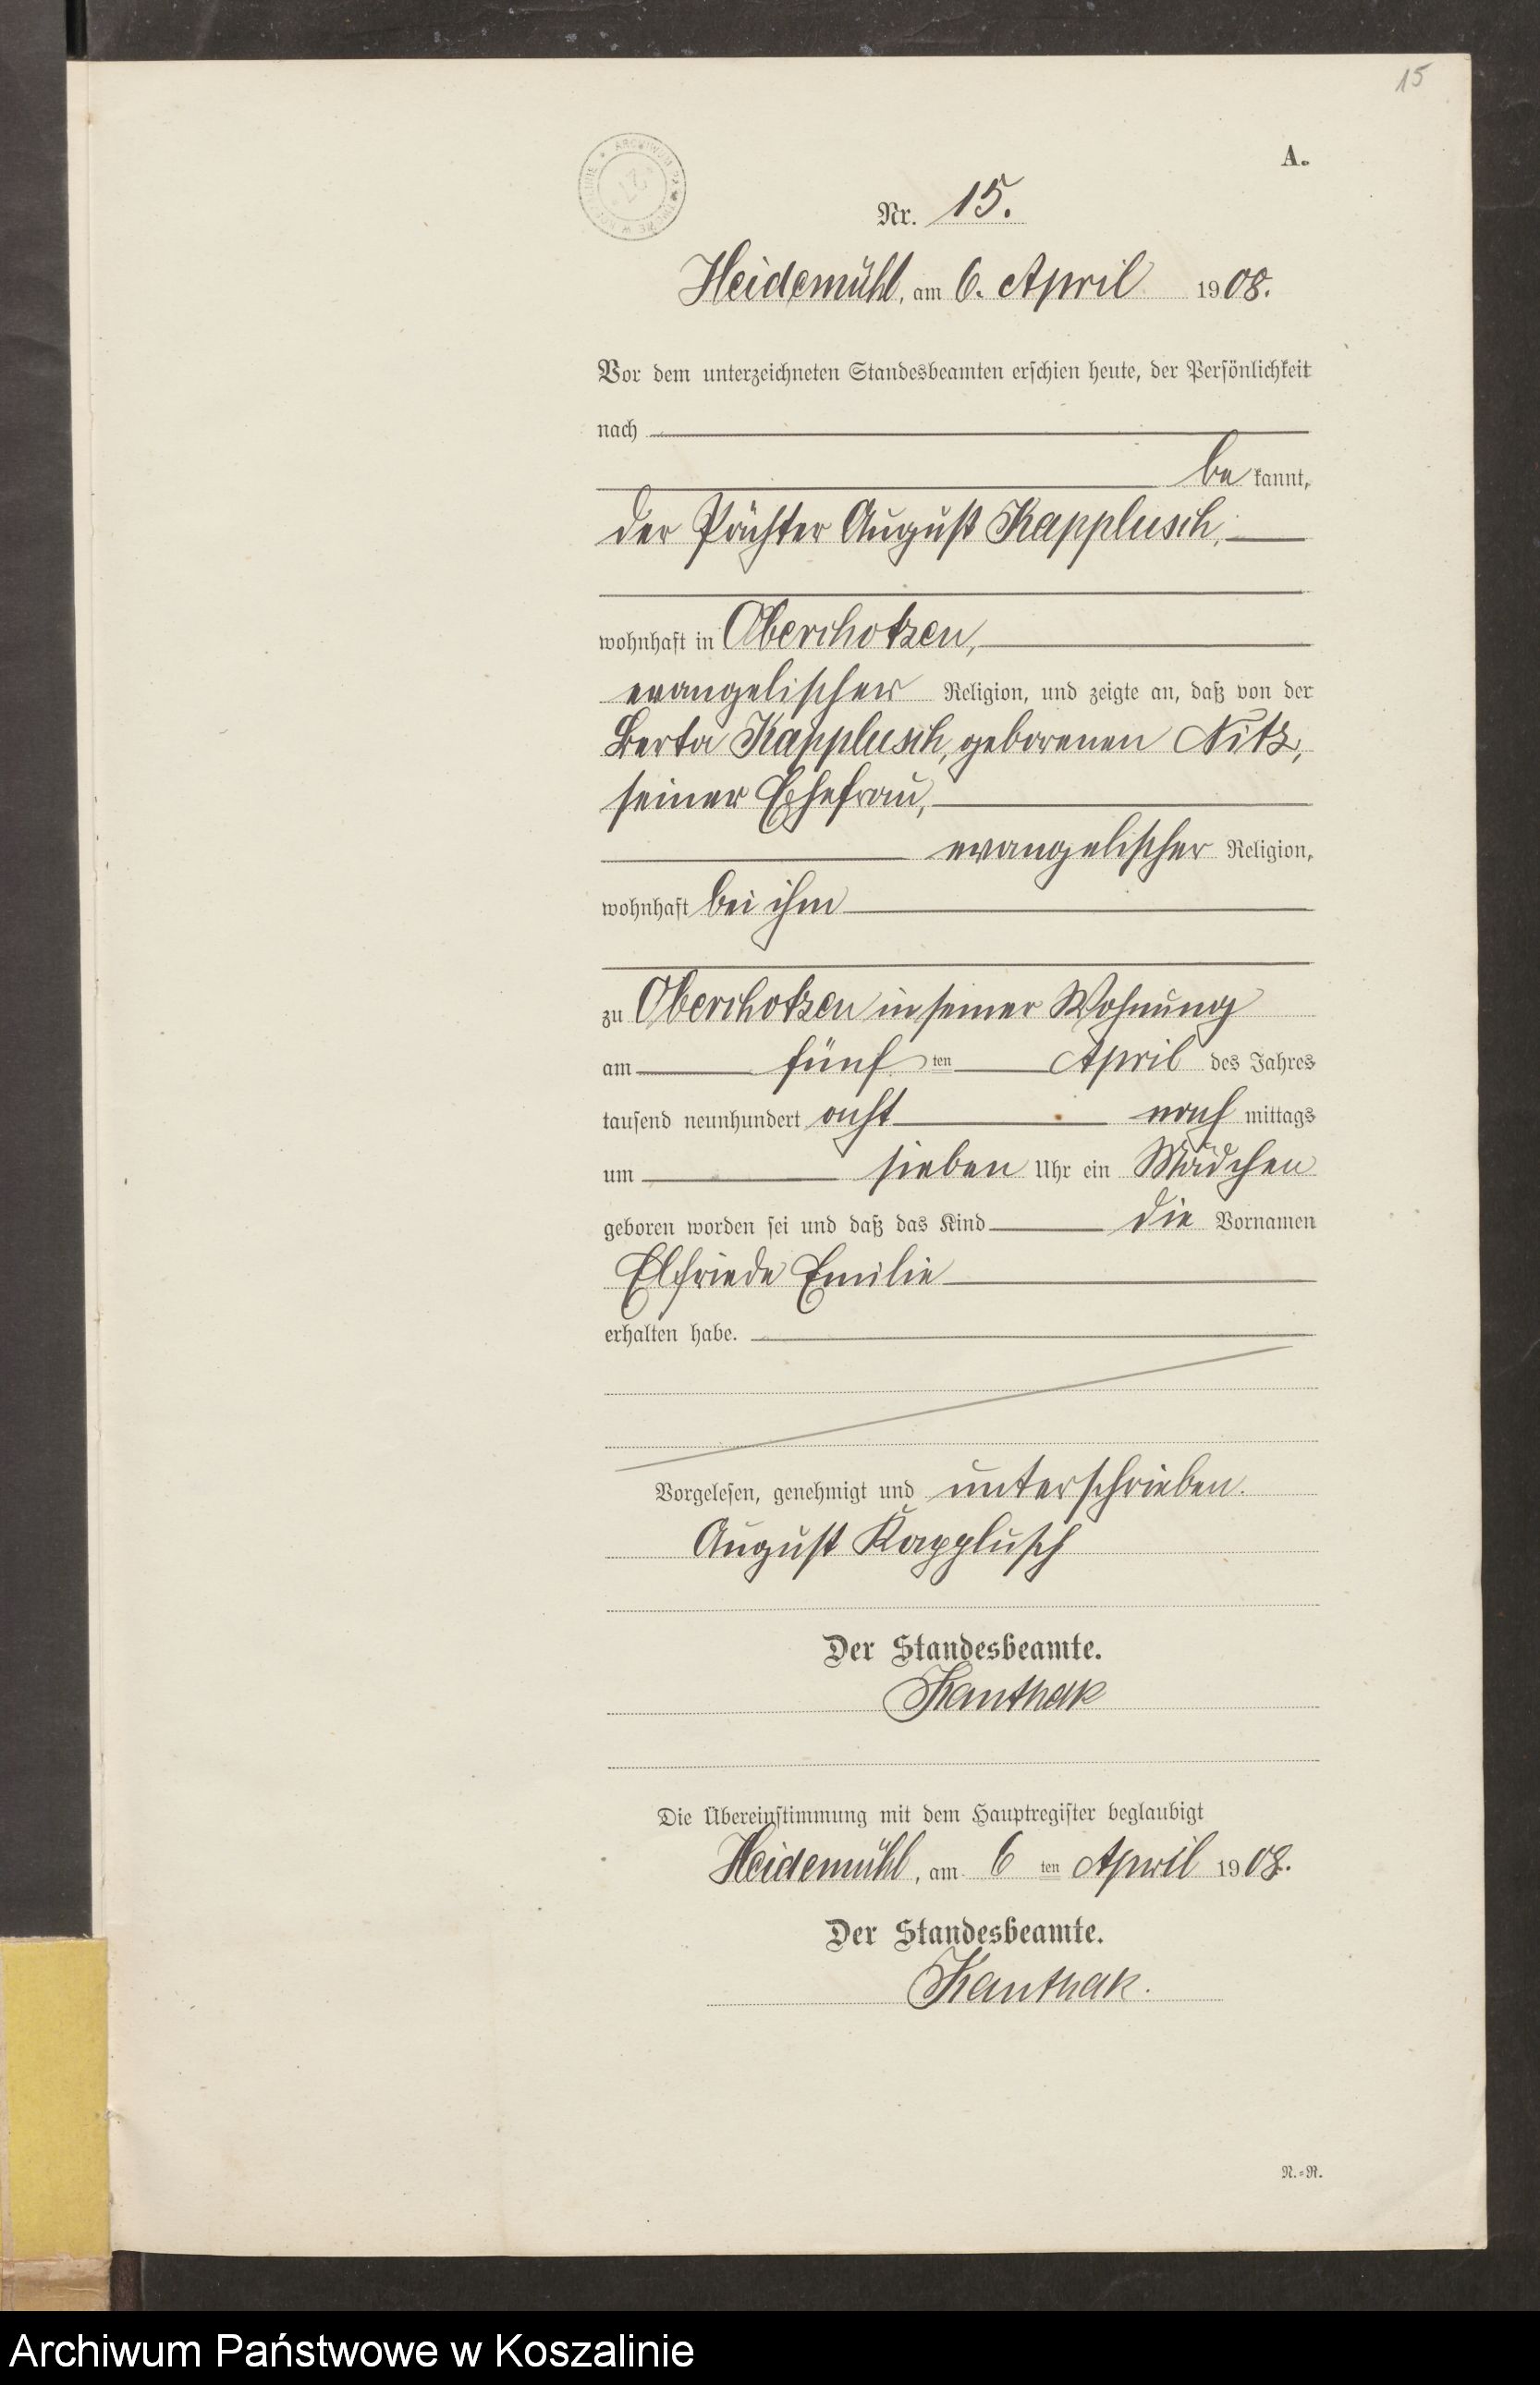 15
A.
Nr. 15.
Heidemühl, am 6. April 1908.
Vor dem unterzeichneten Standesbeamten erschien heute, der Persönlichkeit
nach
be kannt,
der Pächter August Kapplusch,
wohnhaft in Oberchotzen,
evangelischer Religion, und zeigte an, daß von der
Berta Kapplusch, geborenen Nitz,
seiner Ehefrau,
evangelischer Religion,
wohnhaft bei ihm
zu Oberchotzen in seiner Wohnung
am fünf ten April des Jahres
tausend neunhundert acht nach mittags
um sieben Uhr ein Mädchen
geboren worden sei und daß das Kind die Vornamen
Elfriede Emilie
erhalten habe.
Vorgelesen, genehmigt und unterschrieben.
August Kapplusch
Der Standesbeamte.
Kanthak
Die Übereinstimmung mit dem Hauptregister beglaubigt
Heidemühl, am 6 ten April 1908.
Der Standesbeamte.
Kanthak.
N.=R.
Archiwum Państwowe w Koszalinie